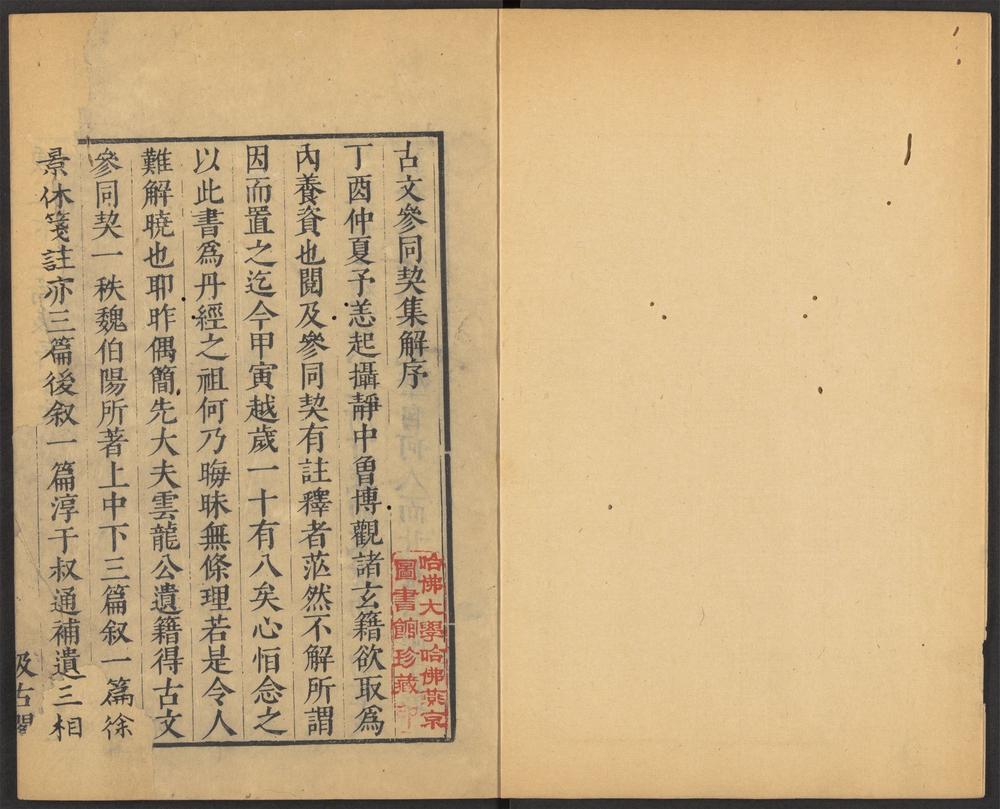 古文參同契集解序
丁酉仲夏予恙起攝靜中曾博觀諸玄籍欲取爲
內養資也閱及參同契有註釋者茫然不解所謂
因而置之迄今甲寅越歲一十有八矣心怕念之
以此書爲丹經之祖何乃晦昧無條理若是令人
難解曉也耶昨偶簡先大夫雲龍公遺籍得古文
參同契一秩魏伯陽所著上中下三篇叙一篇徐
景休箋註亦三篇後叙一篇淳于叔通補遺三相
汲古閣
哈佛大學哈佛燕京
圖書館珍藏印